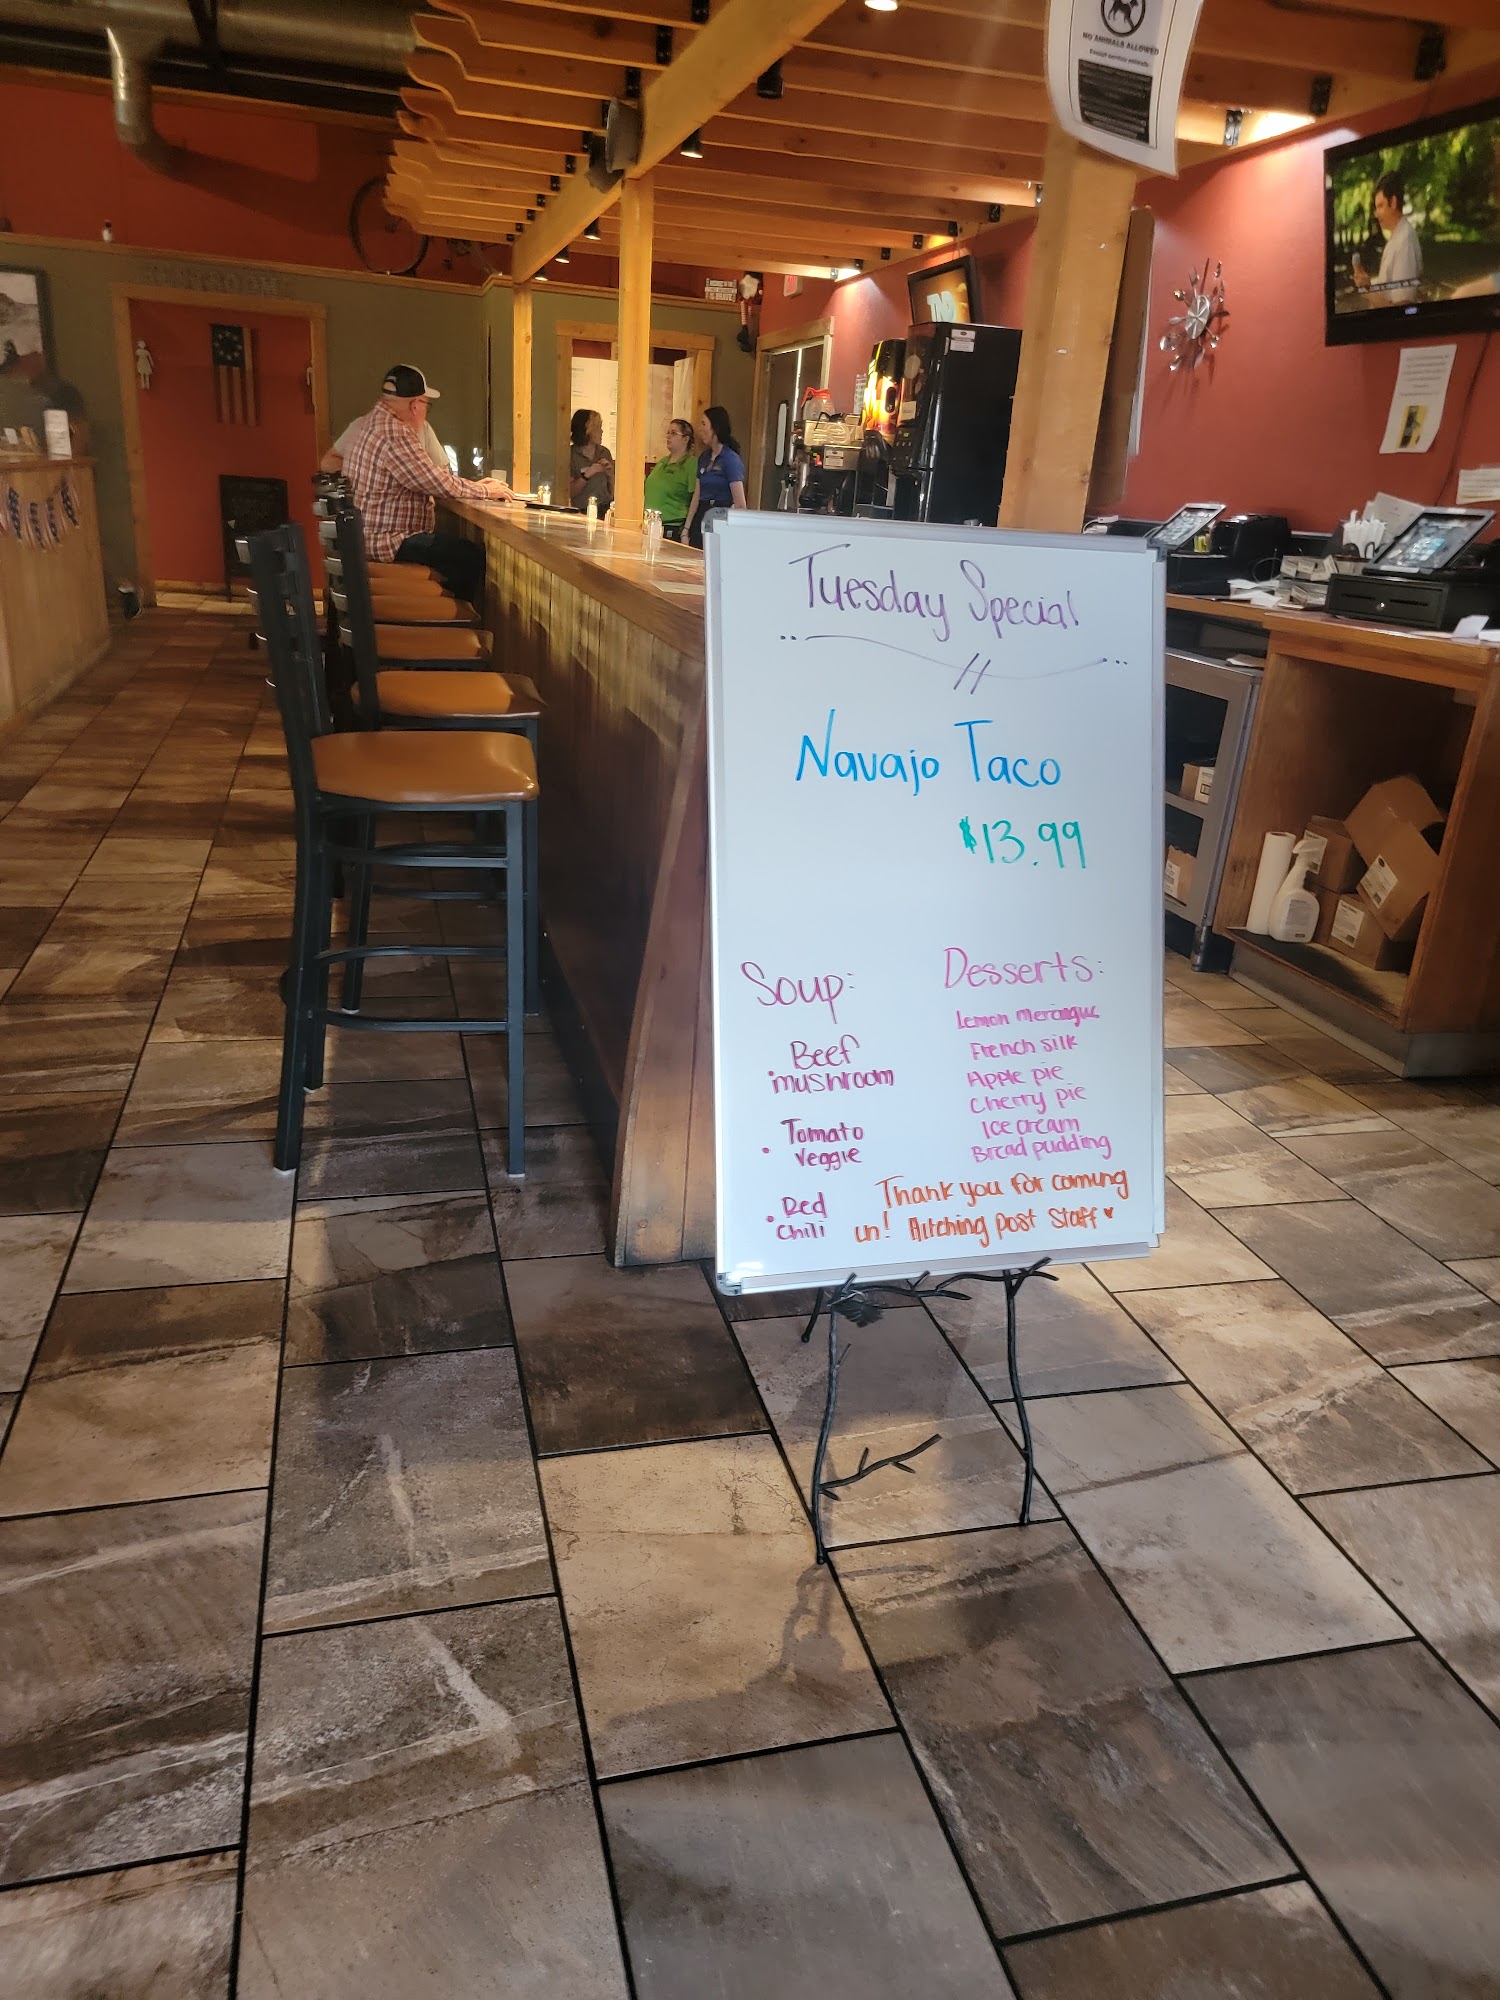 NO ANIMALS ALLOWED
Except service animals
Tuesday Special
Navajo Taco
$13.99
Soup:
• Beef
mushroom
• Tomato
Veggie
• Red
Chili
Desserts:
Lemon Meringue
French silk
Apple pie
Cherry pie
Ice cream
Bread pudding
Thank you for coming
in! Hitching post Staff